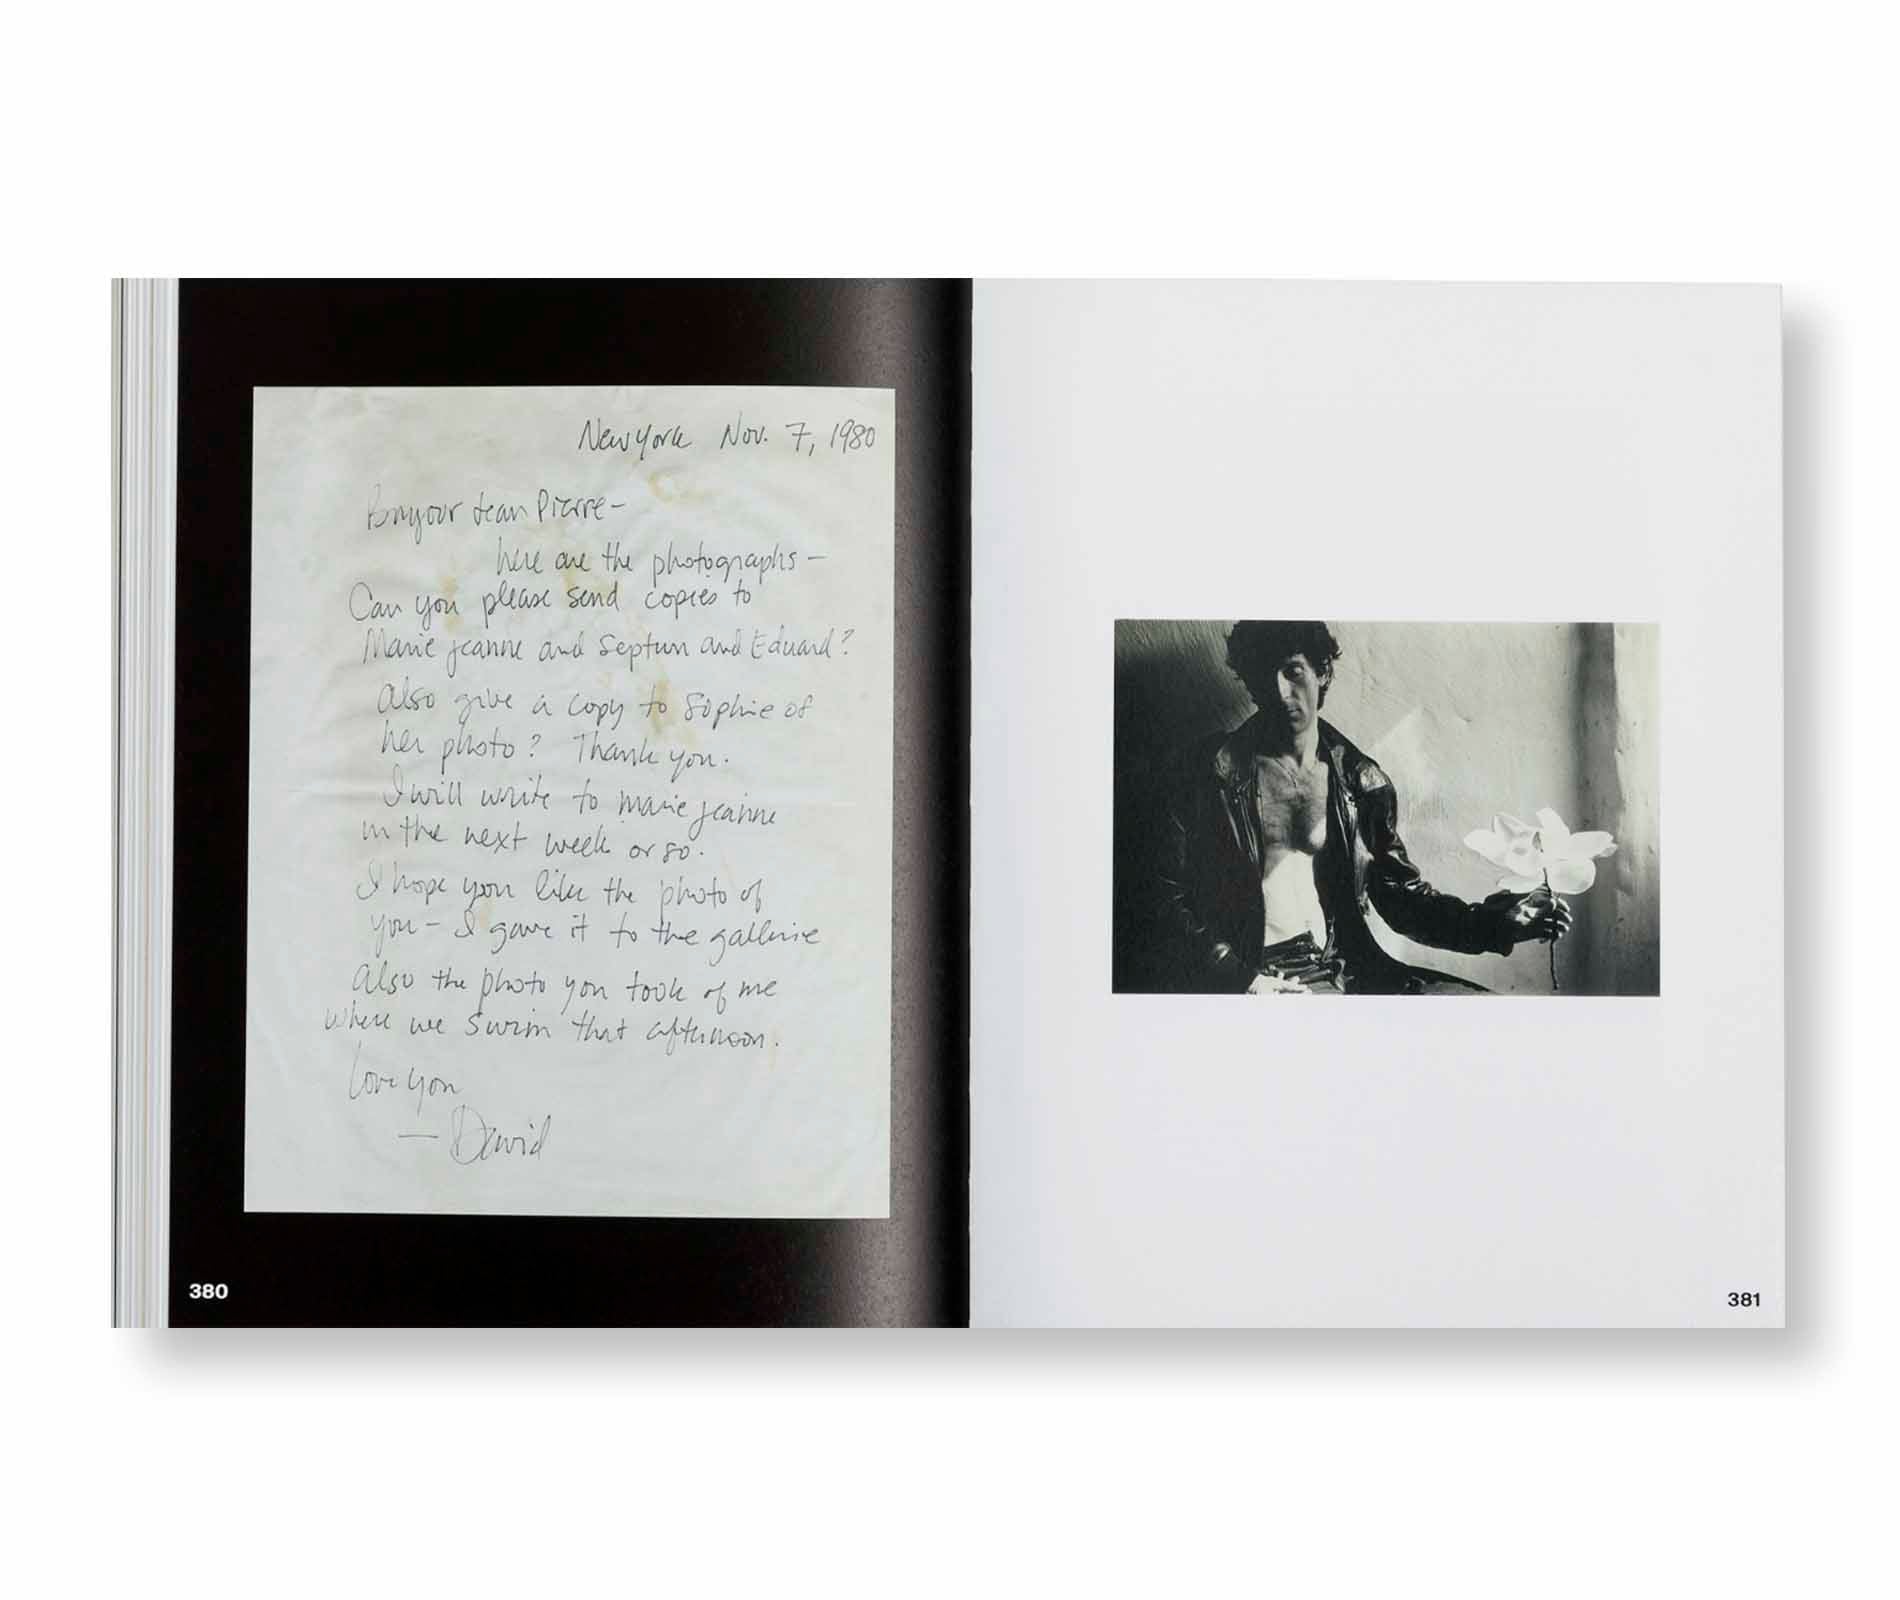 New York Nov. 7, 1980
Bonjour Jean Pierre—
here are the photographs—
Can you please send copies to
Marie Jeanne and Septun and Eduard?
Also give a copy to Sophie of
her photo? Thank you.
I will write to marie jeanne
in the next week or so.
I hope you like the photo of
you— I gave it to the gallerie
also the photo you took of me
where we swim that afternoon.
Love you
— David
380
381